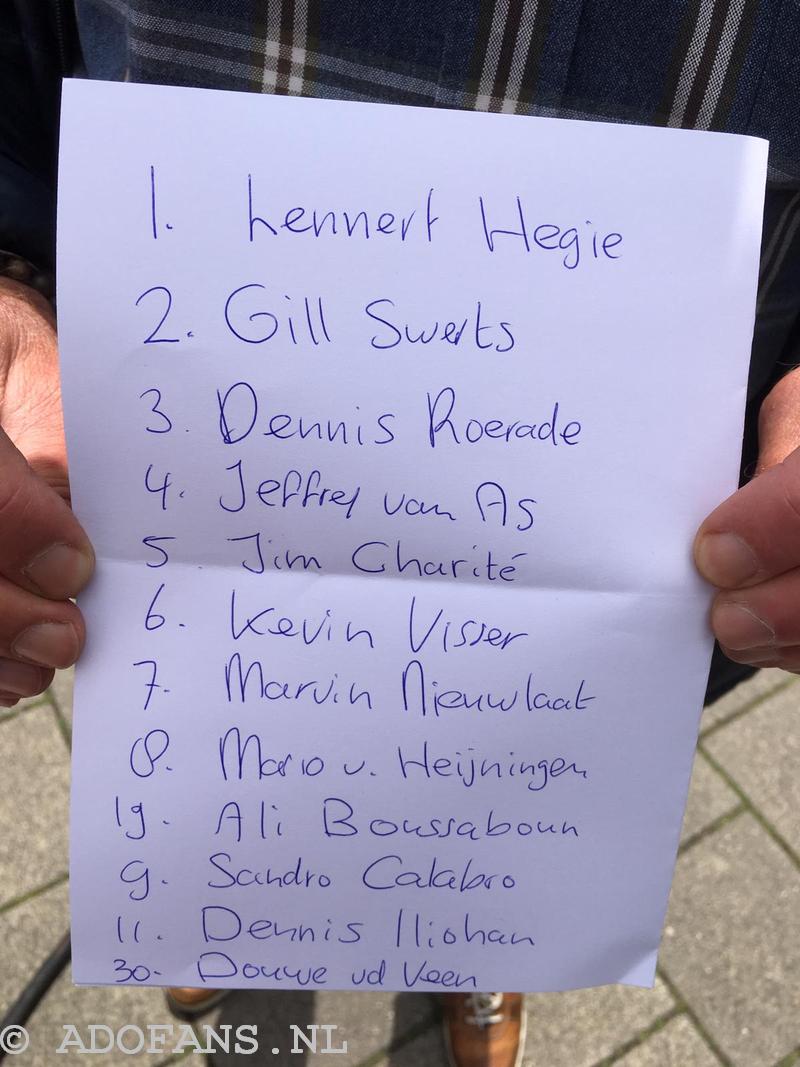 1. Lennert Hegie
2. Gill Swerts
3. Dennis Roerade
4. Jeffrey van As
5. Jim Charité
6. Kevin Visser
7. Marvin Nieuwlaat
8. Mario v. Heijningen
19. Ali Boussaboun
9. Sandro Calabro
11. Dennis Iliohan
30. Douwe vd Veen
© ADOFANS.NL